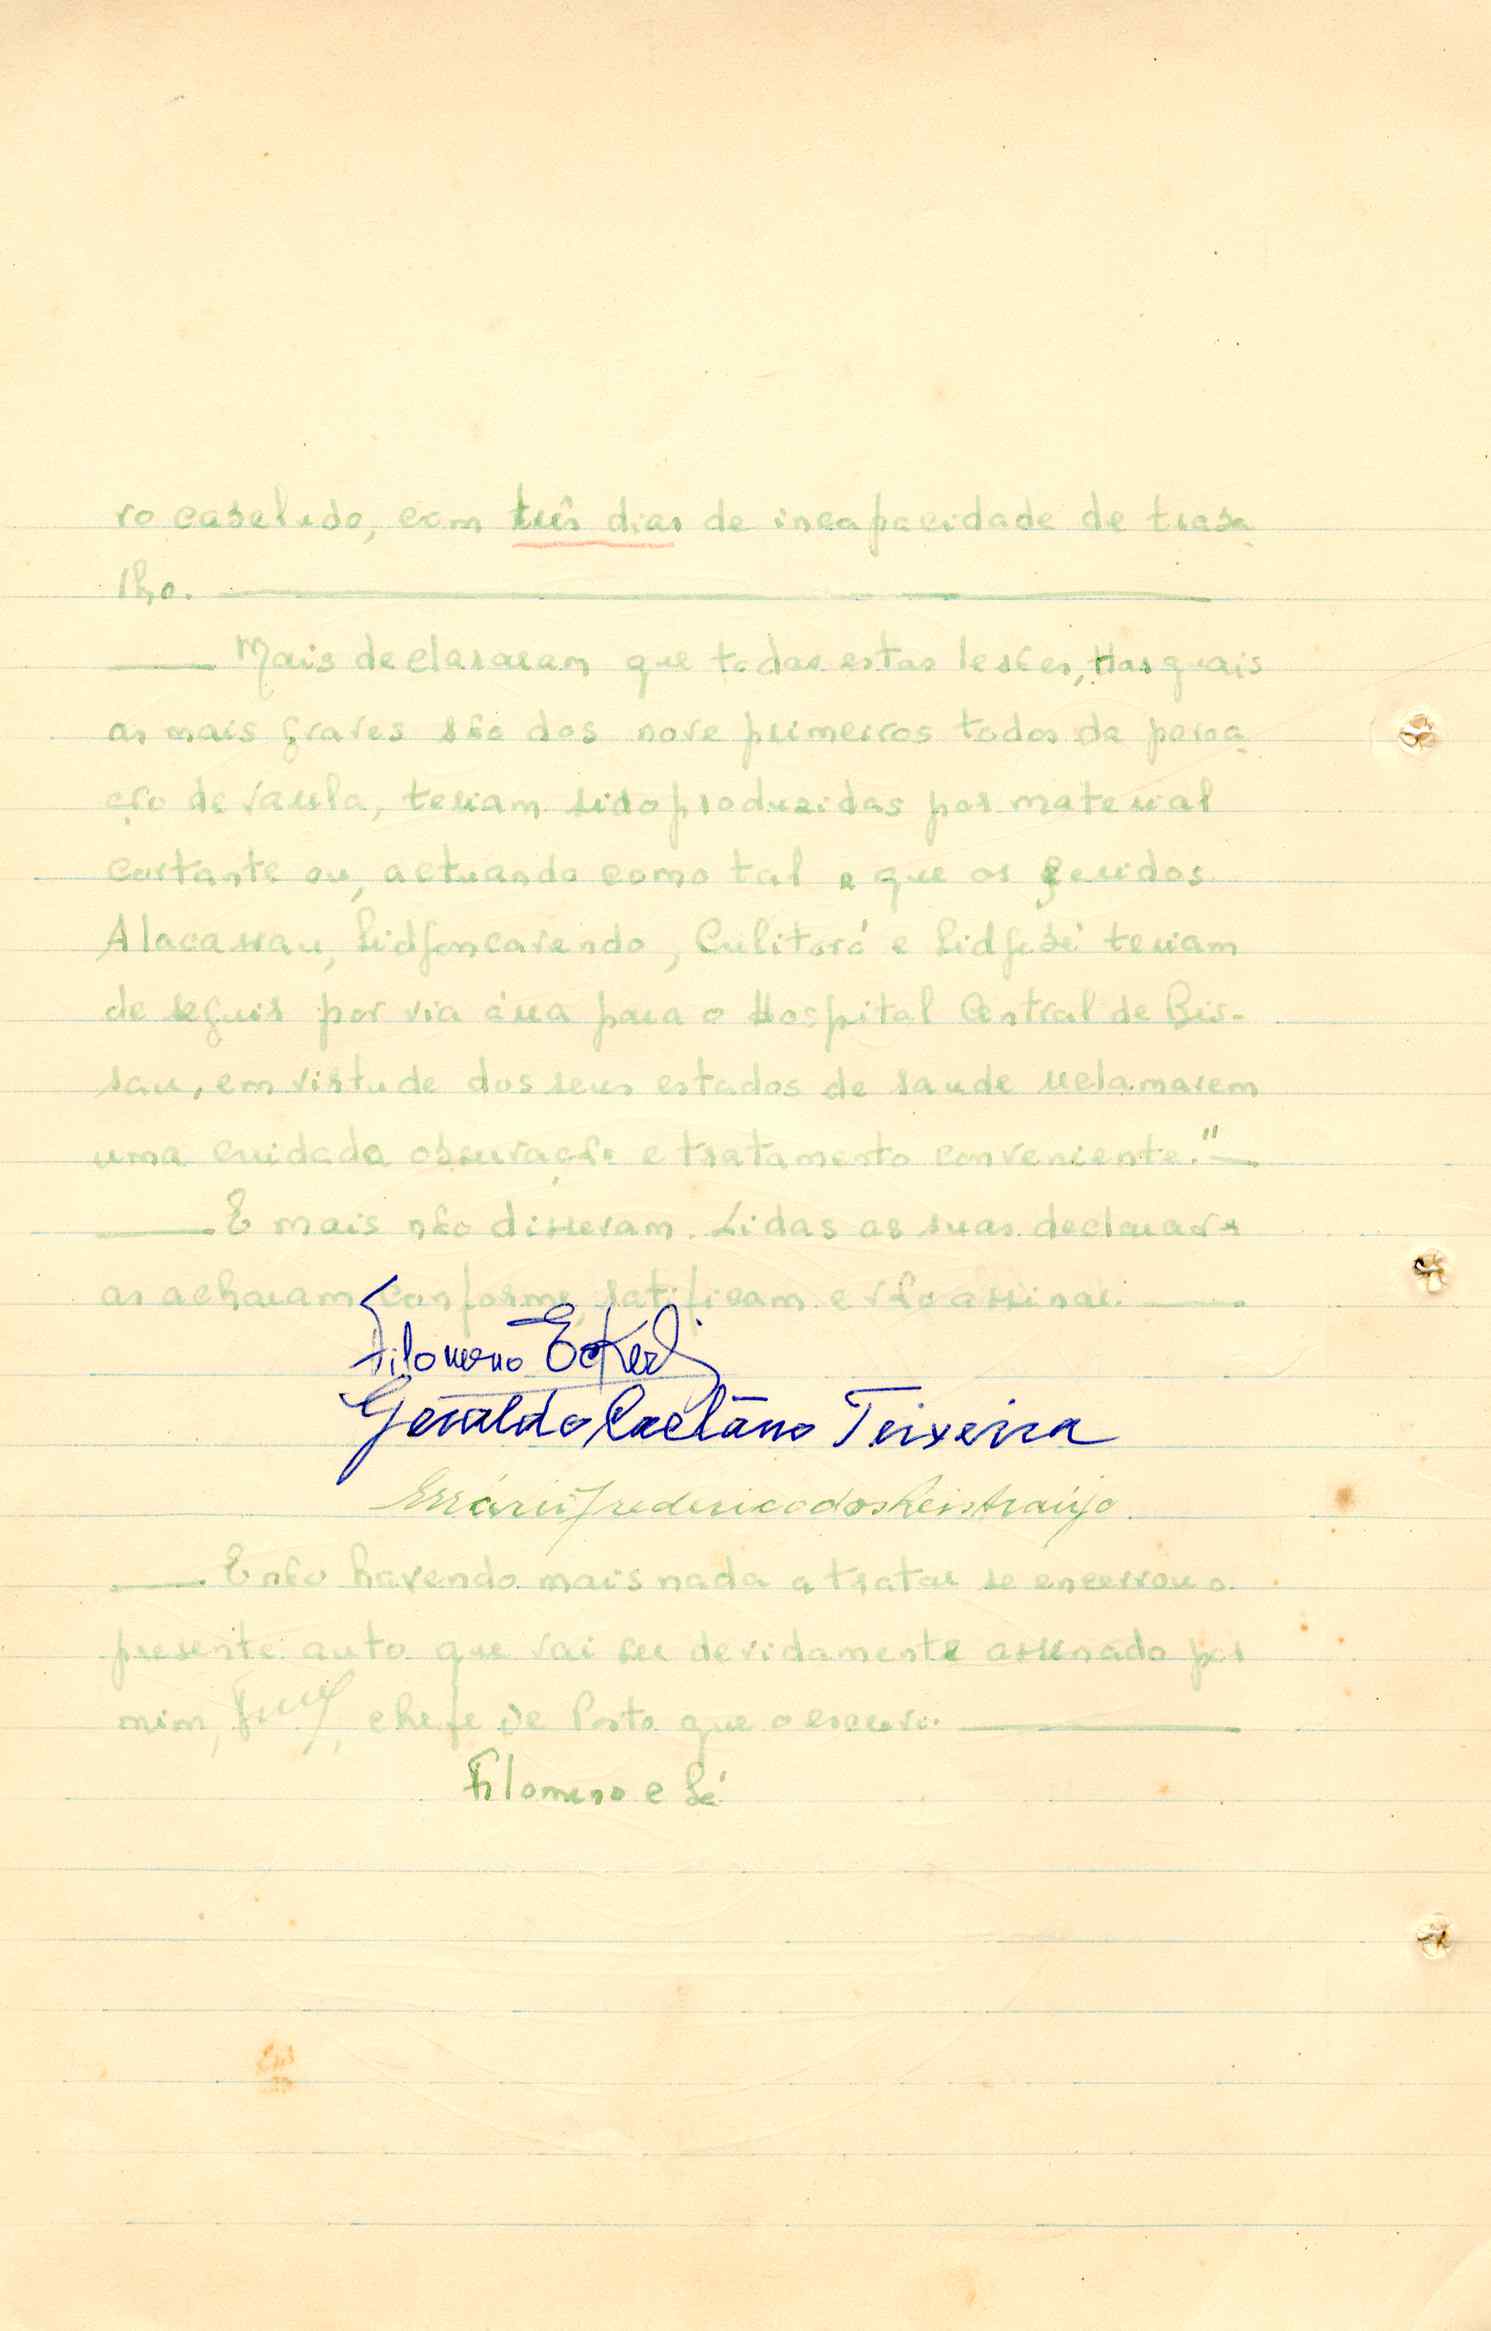 ro cabeludo, com três dias de incapacidade de traba-
lho.
Mais declararam que todas estas lesões, das quais
as mais graves são dos nove primeiros todos da povoa-
ção de Varela, teriam sido produzidas por material
cortante ou, actuando como tal e que os feridos
Alacassau, Sidjoncavendo, Culitoró e Sidjubé teriam
de seguir por via aérea para o Hospital Central de Bis-
sau, em virtude dos seus estados de saude reclamarem
uma cuidada observação e tratamento conveniente."
E mais não disseram. Lidas as suas declarações
as acharam conforme, ratificam e vão assinar.
Filomeno
Geraldo Caetano Teixeira
Frederico dos Reis Araújo
E não havendo mais nada a tratar se encerrou o
presente auto que vai ser devidamente assinado por
mim, chefe de Posto que o escrevi.
Filomeno e Sá